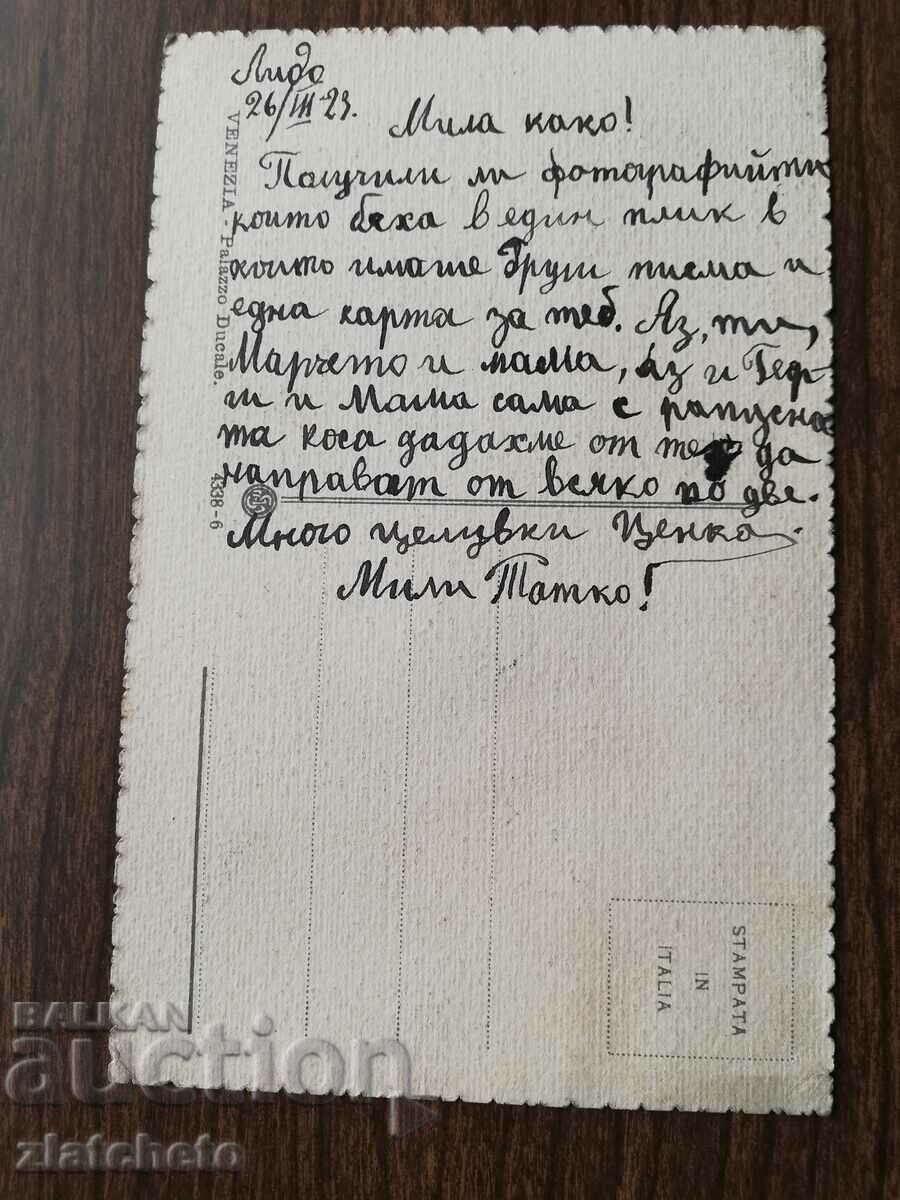 Лидо
26/III 23.
Мила како!
Получили ли фотографийти
които бяха в един плик в
който имаше други писма и
една карта за теб. Аз, ти,
Марчето и мама, аз и
ги и Мама сама с
та коса дадохме от тех да
направят от всяко по две.
Много целувки Ценка.
Мили Татко!
VENEZIA - Palazzo Ducale.
4338-6
STAMPATA
IN
ITALIA
BALKAN
auction
zlatcheto